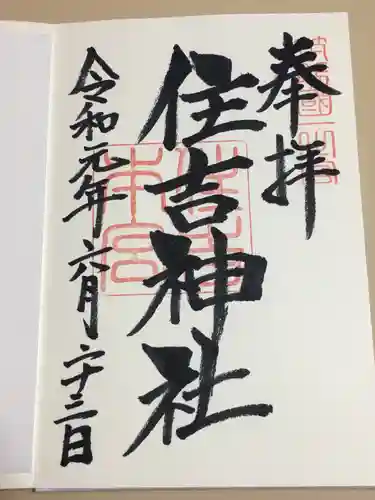 奉拝
住吉神社
令和元年六月二十三日